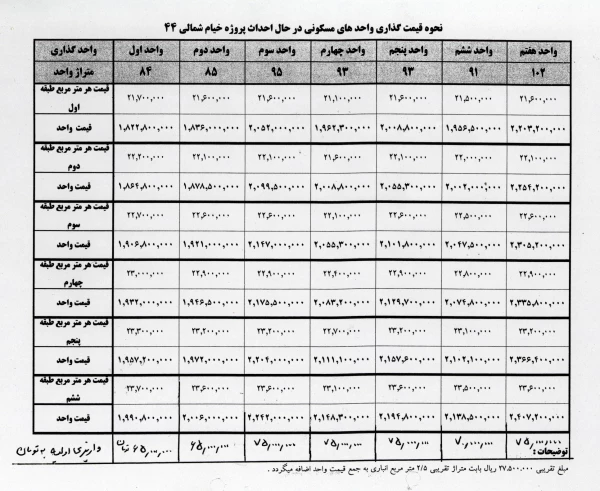 نحوه قیمت گذاری واحد های مسکونی در حال احداث پروژه خیام شمالی ۴۴
واحد گذاری واحد اول واحد دوم واحد سوم واحد چهارم واحد پنجم واحد ششم واحد هفتم
متراژ واحد ۸۴ ۸۵ ۹۵ ۹۳ ۹۳ ۹۱ ۱۰۲
قیمت هر متر مربع طبقه اول ۲۱,۷۰۰,۰۰۰ ۲۱,۶۰۰,۰۰۰ ۲۱,۶۰۰,۰۰۰ ۲۱,۱۰۰,۰۰۰ ۲۱,۶۰۰,۰۰۰ ۲۱,۵۰۰,۰۰۰ ۲۱,۶۰۰,۰۰۰
قیمت واحد ۱,۸۲۲,۸۰۰,۰۰۰ ۱,۸۳۶,۰۰۰,۰۰۰ ۲,۰۵۲,۰۰۰,۰۰۰ ۱,۹۶۲,۳۰۰,۰۰۰ ۲,۰۰۸,۸۰۰,۰۰۰ ۱,۹۵۶,۵۰۰,۰۰۰ ۲,۲۰۳,۲۰۰,۰۰۰
قیمت هر متر مربع طبقه دوم ۲۲,۲۰۰,۰۰۰ ۲۲,۱۰۰,۰۰۰ ۲۲,۱۰۰,۰۰۰ ۲۱,۶۰۰,۰۰۰ ۲۲,۱۰۰,۰۰۰ ۲۲,۰۰۰,۰۰۰ ۲۲,۱۰۰,۰۰۰
قیمت واحد ۱,۸۶۴,۸۰۰,۰۰۰ ۱,۸۷۸,۵۰۰,۰۰۰ ۲,۰۹۹,۵۰۰,۰۰۰ ۲,۰۰۸,۸۰۰,۰۰۰ ۲,۰۵۵,۳۰۰,۰۰۰ ۲,۰۰۲,۰۰۰,۰۰۰ ۲,۲۵۴,۲۰۰,۰۰۰
قیمت هر متر مربع طبقه سوم ۲۲,۷۰۰,۰۰۰ ۲۲,۶۰۰,۰۰۰ ۲۲,۶۰۰,۰۰۰ ۲۲,۱۰۰,۰۰۰ ۲۲,۶۰۰,۰۰۰ ۲۲,۵۰۰,۰۰۰ ۲۲,۶۰۰,۰۰۰
قیمت واحد ۱,۹۰۶,۸۰۰,۰۰۰ ۱,۹۲۱,۰۰۰,۰۰۰ ۲,۱۴۷,۰۰۰,۰۰۰ ۲,۰۵۵,۳۰۰,۰۰۰ ۲,۱۰۱,۸۰۰,۰۰۰ ۲,۰۴۷,۵۰۰,۰۰۰ ۲,۳۰۵,۲۰۰,۰۰۰
قیمت هر متر مربع طبقه چهارم ۲۳,۰۰۰,۰۰۰ ۲۲,۹۰۰,۰۰۰ ۲۲,۹۰۰,۰۰۰ ۲۲,۴۰۰,۰۰۰ ۲۲,۹۰۰,۰۰۰ ۲۲,۸۰۰,۰۰۰ ۲۲,۹۰۰,۰۰۰
قیمت واحد ۱,۹۳۲,۰۰۰,۰۰۰ ۱,۹۴۶,۵۰۰,۰۰۰ ۲,۱۷۵,۵۰۰,۰۰۰ ۲,۰۸۳,۲۰۰,۰۰۰ ۲,۱۲۹,۷۰۰,۰۰۰ ۲,۰۷۴,۸۰۰,۰۰۰ ۲,۳۳۵,۸۰۰,۰۰۰
قیمت هر متر مربع طبقه پنجم ۲۳,۳۰۰,۰۰۰ ۲۳,۲۰۰,۰۰۰ ۲۳,۲۰۰,۰۰۰ ۲۲,۷۰۰,۰۰۰ ۲۳,۲۰۰,۰۰۰ ۲۳,۱۰۰,۰۰۰ ۲۳,۲۰۰,۰۰۰
قیمت واحد ۱,۹۵۷,۲۰۰,۰۰۰ ۱,۹۷۲,۰۰۰,۰۰۰ ۲,۲۰۴,۰۰۰,۰۰۰ ۲,۱۱۱,۱۰۰,۰۰۰ ۲,۱۵۷,۶۰۰,۰۰۰ ۲,۱۰۲,۱۰۰,۰۰۰ ۲,۳۶۶,۴۰۰,۰۰۰
قیمت هر متر مربع طبقه ششم ۲۳,۷۰۰,۰۰۰ ۲۳,۶۰۰,۰۰۰ ۲۳,۶۰۰,۰۰۰ ۲۳,۱۰۰,۰۰۰ ۲۳,۶۰۰,۰۰۰ ۲۳,۵۰۰,۰۰۰ ۲۳,۶۰۰,۰۰۰
قیمت واحد ۱,۹۹۰,۸۰۰,۰۰۰ ۲,۰۰۶,۰۰۰,۰۰۰ ۲,۲۴۲,۰۰۰,۰۰۰ ۲,۱۴۸,۳۰۰,۰۰۰ ۲,۱۹۴,۸۰۰,۰۰۰ ۲,۱۳۸,۵۰۰,۰۰۰ ۲,۴۰۷,۲۰۰,۰۰۰
واریزی اولیه به تومان ۶۵,۰۰۰,۰۰۰ تومان ۶۵,۰۰۰,۰۰۰ ۷۵,۰۰۰,۰۰۰ ۷۵,۰۰۰,۰۰۰ ۷۵,۰۰۰,۰۰۰ ۷۰,۰۰۰,۰۰۰ ۷۵,۰۰۰,۰۰۰
توضیحات :
مبلغ تقریبی ۲۷.۵۰۰.۰۰۰ ریال بابت متراژ تقریبی ۲/۵ متر مربع انباری به جمع قیمت واحد اضافه میگردد .